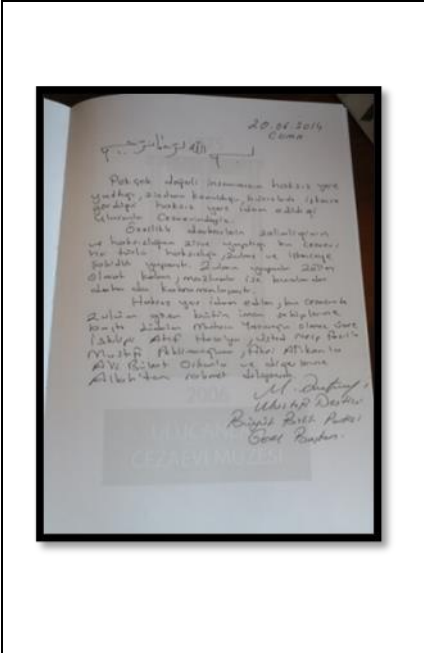 20.06.2014
Cuma
Pek çok değerli insanımızın haksız yere
yattığı, zindana konulduğu, burada işkence
gördüğü haksız yere idam edildiği
Ulucanlar Cezaevindeyiz.
Özellikle darbelerin
ve haksızlığın zirve yaptığı bu cezaevi
her türlü haksızlığa, zulme ve işkenceye
şahitlik yapmıştır. Zulüm yapanlar zalim
olarak kalan, mazlumlar ise buralardan
daha da kahramanlaşmıştır.
Haksız yere idam edilen, bu cezaevinde
zulüm gören bütün iman sahiplerine
başta Muhsin Yazıcıoğlu olmak üzere
İskilipli Atıf Hoca'ya, üstad Necip Fazıl'a
Mustafa Pehlivanoğluna, Fikri Arıkan'a
Ali Bülent Orkan'a ve diğerlerine
Allah'tan rahmet diliyorum.
Mustafa Destici
Büyük Birlik Partisi
Genel Başkanı
2006
ULUCANLAR
CEZAEVİ MÜZESİ